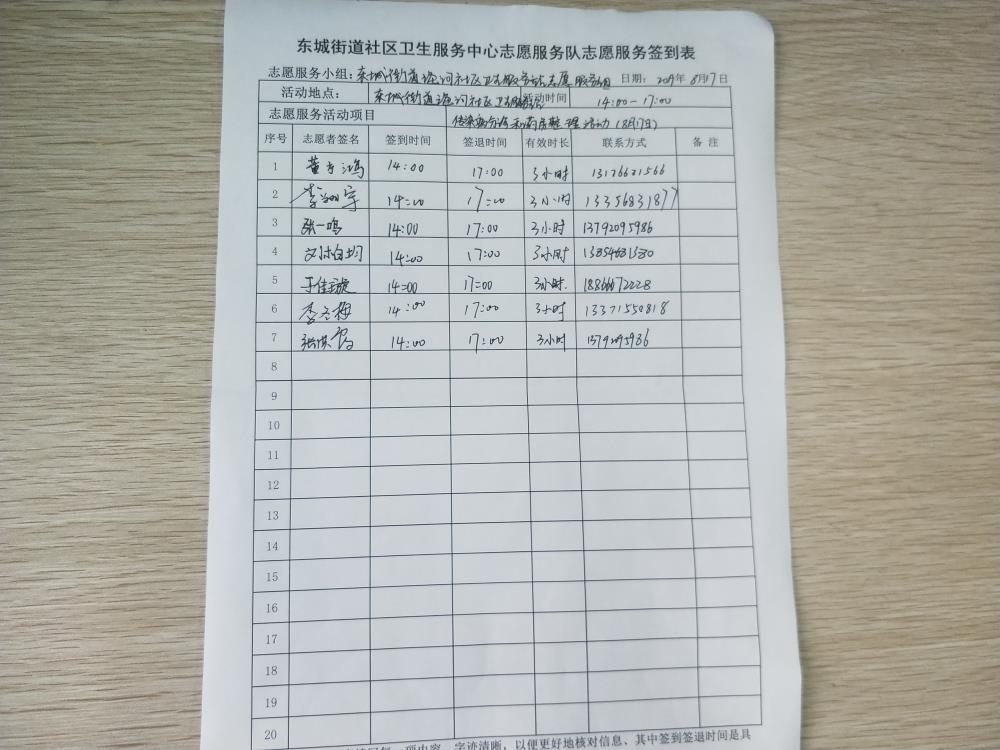 东城街道社区卫生服务中心志愿服务队志愿服务签到表
志愿服务小组：东城街道 河社区卫生服务站志愿服务组 日期： 年8月17日
活动地点： 东城街道 河社区卫生服务站 活动时间 14:00-17:00
志愿服务活动项目 传染病 活动(8月17日)
序号 志愿者签名 签到时间 签退时间 有效时长 联系方式 备注
1 董 鸿 14:00 17:00 3小时 13176621566
2 李 宇 14:00 17:00 3小时 13356831877
3 张一鸣 14:00 17:00 3小时 13792095986
4 14:00 17:00 3小时
5 于佳璇 14:00 17:00 3小时
6 李 梅 14:00 17:00 3小时 13371550818
7 张 14:00 17:00 3小时
8
9
10
11
12
13
14
15
16
17
18
19
20
项内容，字迹清晰，以便更好地核对信息、其中签到签退时间是具